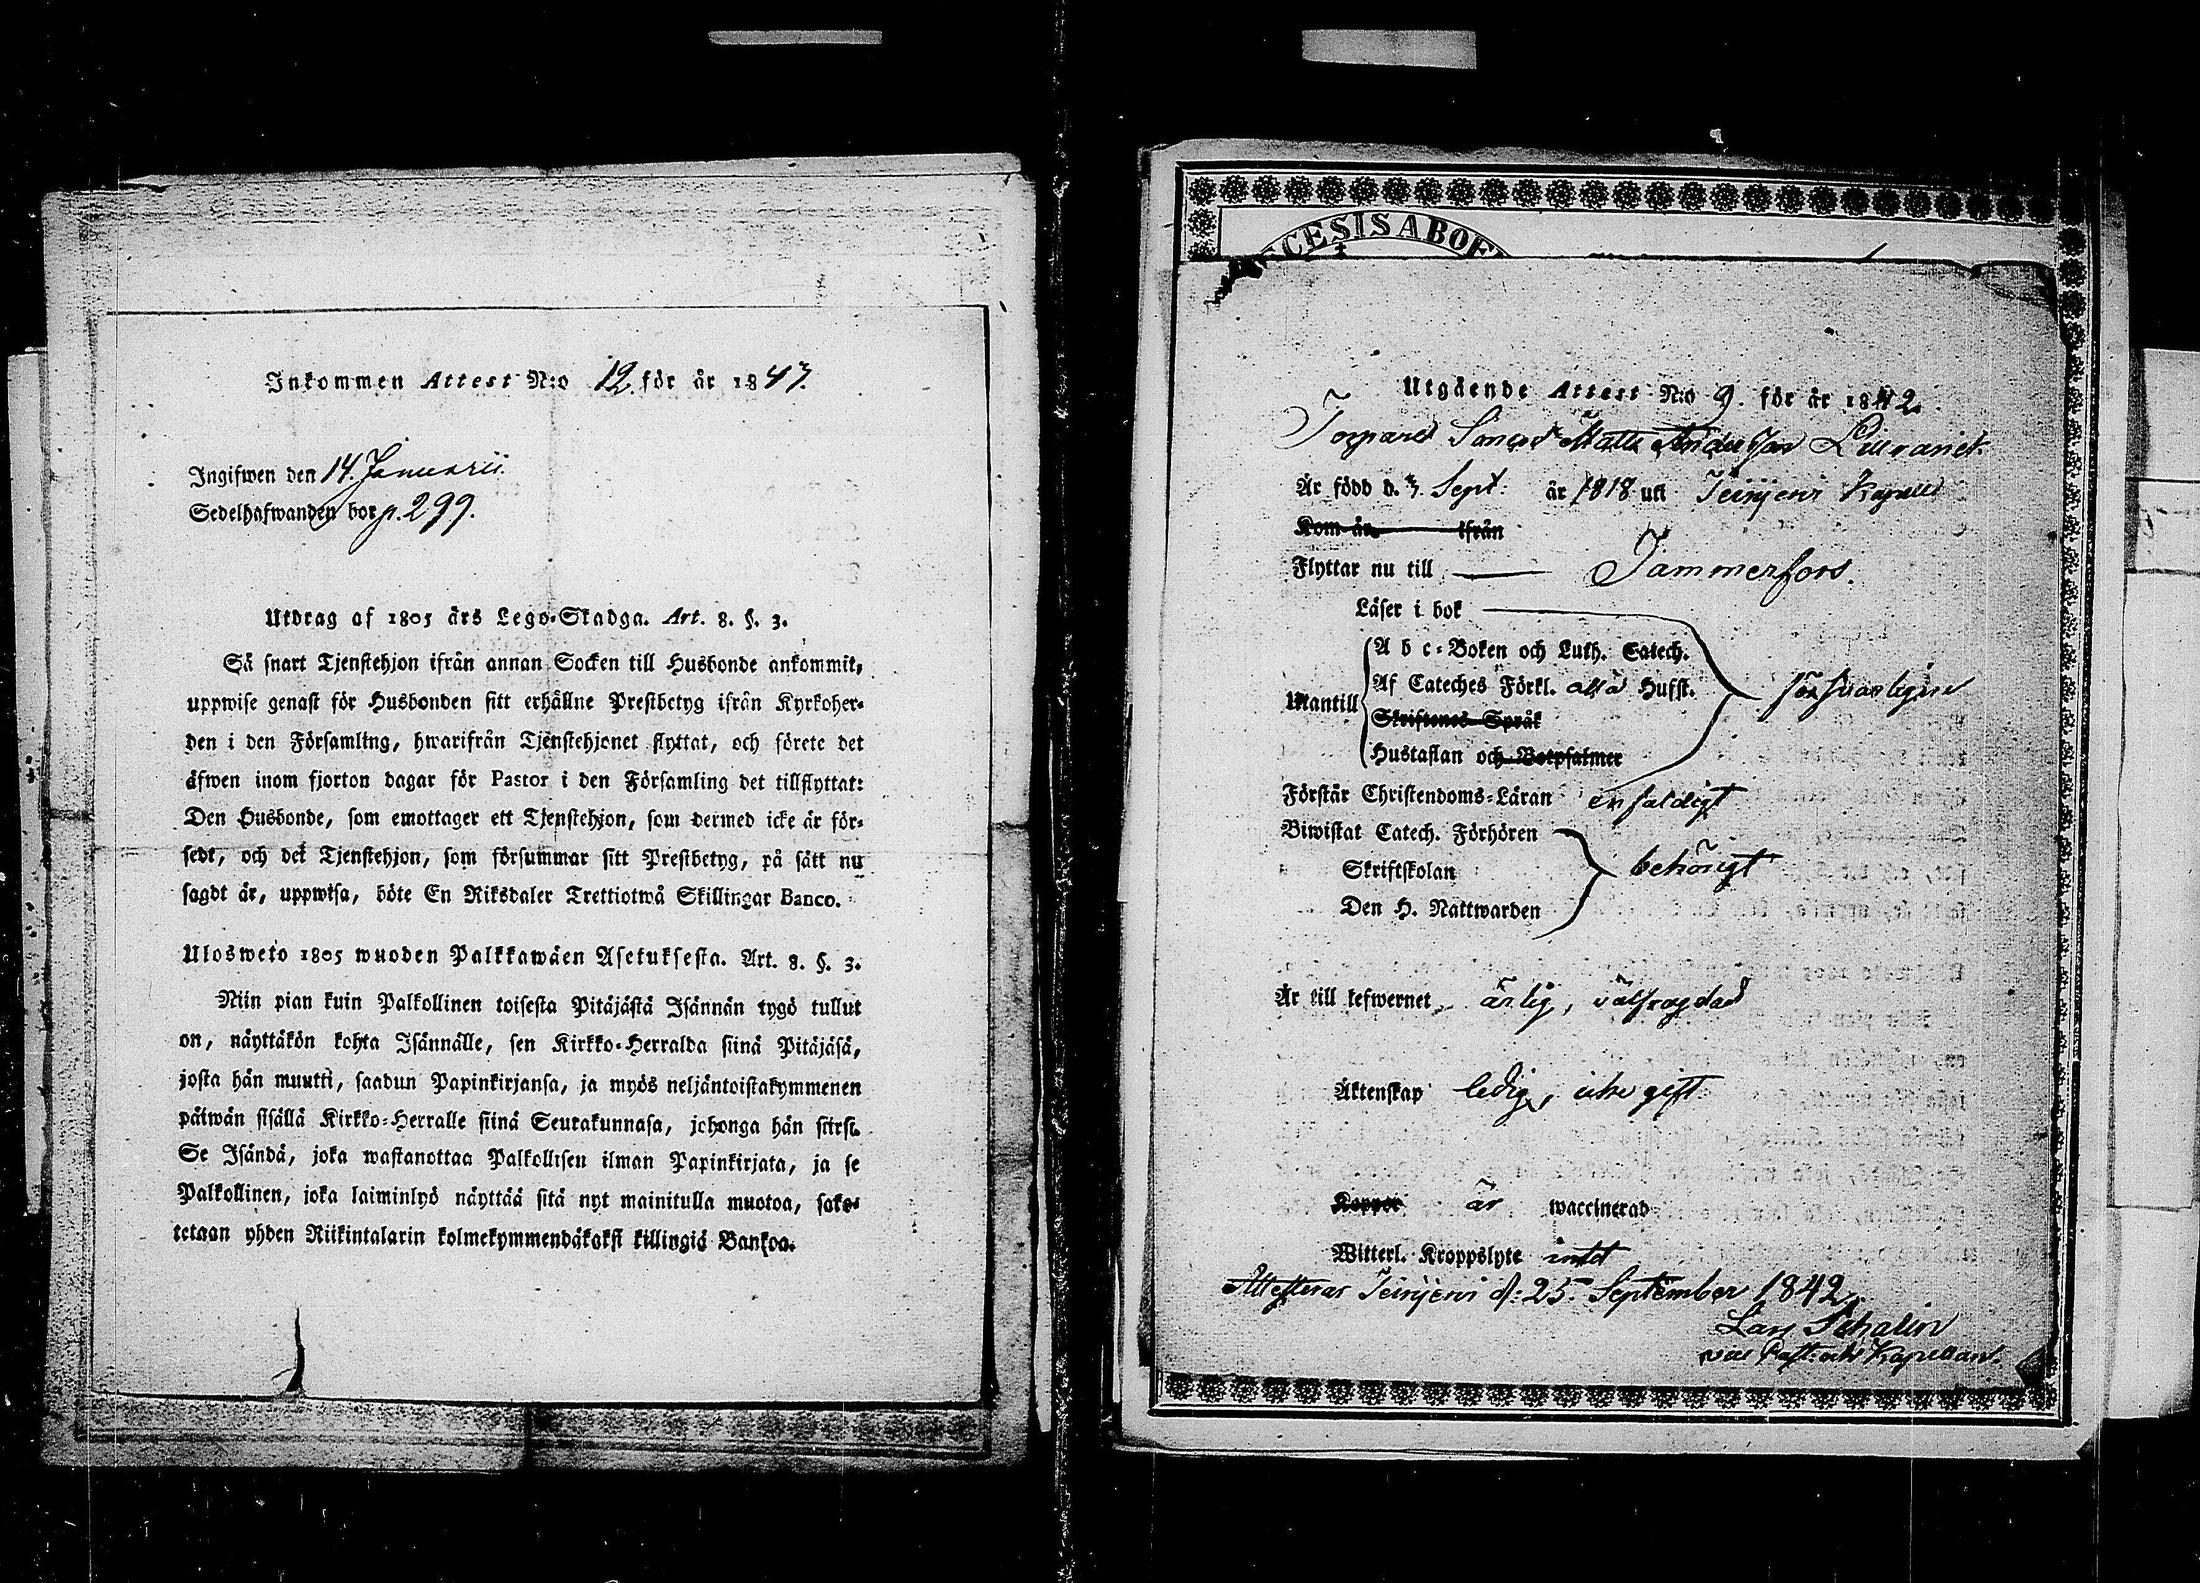 Inkommen Attest N:o 12. för år 1847.
Ingifwen den 14. Januarii.
Sedelhafwanden bor p. 299.
Utdrag af 1805 års Lego-Stadga. Art. 8. §. 3.
Så snart Tjenstehjon ifrån annan Socken till Husbonde ankommit,
uppwise genast för Husbonden sitt erhållne Prestbetyg ifrån Kyrkoher-
den i den Församling, hwarifrån Tjenstehjonet flyttat, och förete det
äfwen inom fjorton dagar för Pastor i den Församling det tillflyttat:
Den Husbonde, som emottager ett Tjenstehjon, som dermed icke är för-
sedt, och det Tjenstehjon, som försummar sitt Prestbetyg, på sätt nu
sagdt är, uppwisa, böte En Riksdaler Trettiotwå Skillingar Banco.
Ulosweto 1805 wuoden Palkkawäen Asetuksesta. Art. 8. §. 3.
Niin pian kuin Palkollinen toisesta Pitäjästä Isännän tygö tullut
on, näyttäkön kohta Isännälle, sen Kirkko-Herralda siinä Pitäjäsä,
josta hän muutti, saadun Papinkirjansa, ja myös neljäntoistakymmenen
päiwän sisällä Kirkko-Herralle siinä Seurakunnasa, johonga hän siirsi.
Se Isändä, joka wastanottaa Palkollisen ilman Papinkirjata, ja se
Palkollinen, joka laiminlyö näyttää sitä nyt mainitulla muotoa, sako-
tetaan yhden Riikintalarin kolmekymmendäkaksi killingiä Bankoa.
CESIS ABOE
Utgående Attest N:o 9. för år 1842.
Torpare Sonen Matts Anders Son
Är född d. 7. Sept. år 1818 uti Teisjervi Kapell
Kom år ifrån
Flyttar nu till Tammerfors.
Läser i bok
A b c-Boken och Luth. Catech.
Utantill Af Cateches Förkl. alla Hufst. försvarligen
Skriftenes Språk
Hustaflan och Botpsalmer
Förstår Christendoms-Läran enfaldigt
Biwistat Catech. Förhören
Skriftskolan behörigt
Den H. Nattwarden
Är till lefwernet ärlig, välfrägdad
Äktenskap ledig, icke gift
Koppor är waccinerad
Witterl. Kroppslyte intet
Attesterar Teisjervi d: 25. September 1842.
Lars Schalin
vice Past: och Kapellan.